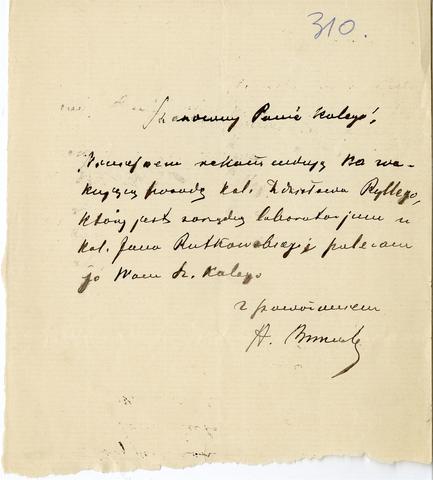 310.
Szanowny Panie Kolego!,
rekomenduję na wa-
kującą posadę kol. Zdzisława Rylłego,
który jest zarządcą laboratorjum u
kol. Jana Rutkowskiego i polecam
go Wam Sz. Kolego
z poważaniem
A.